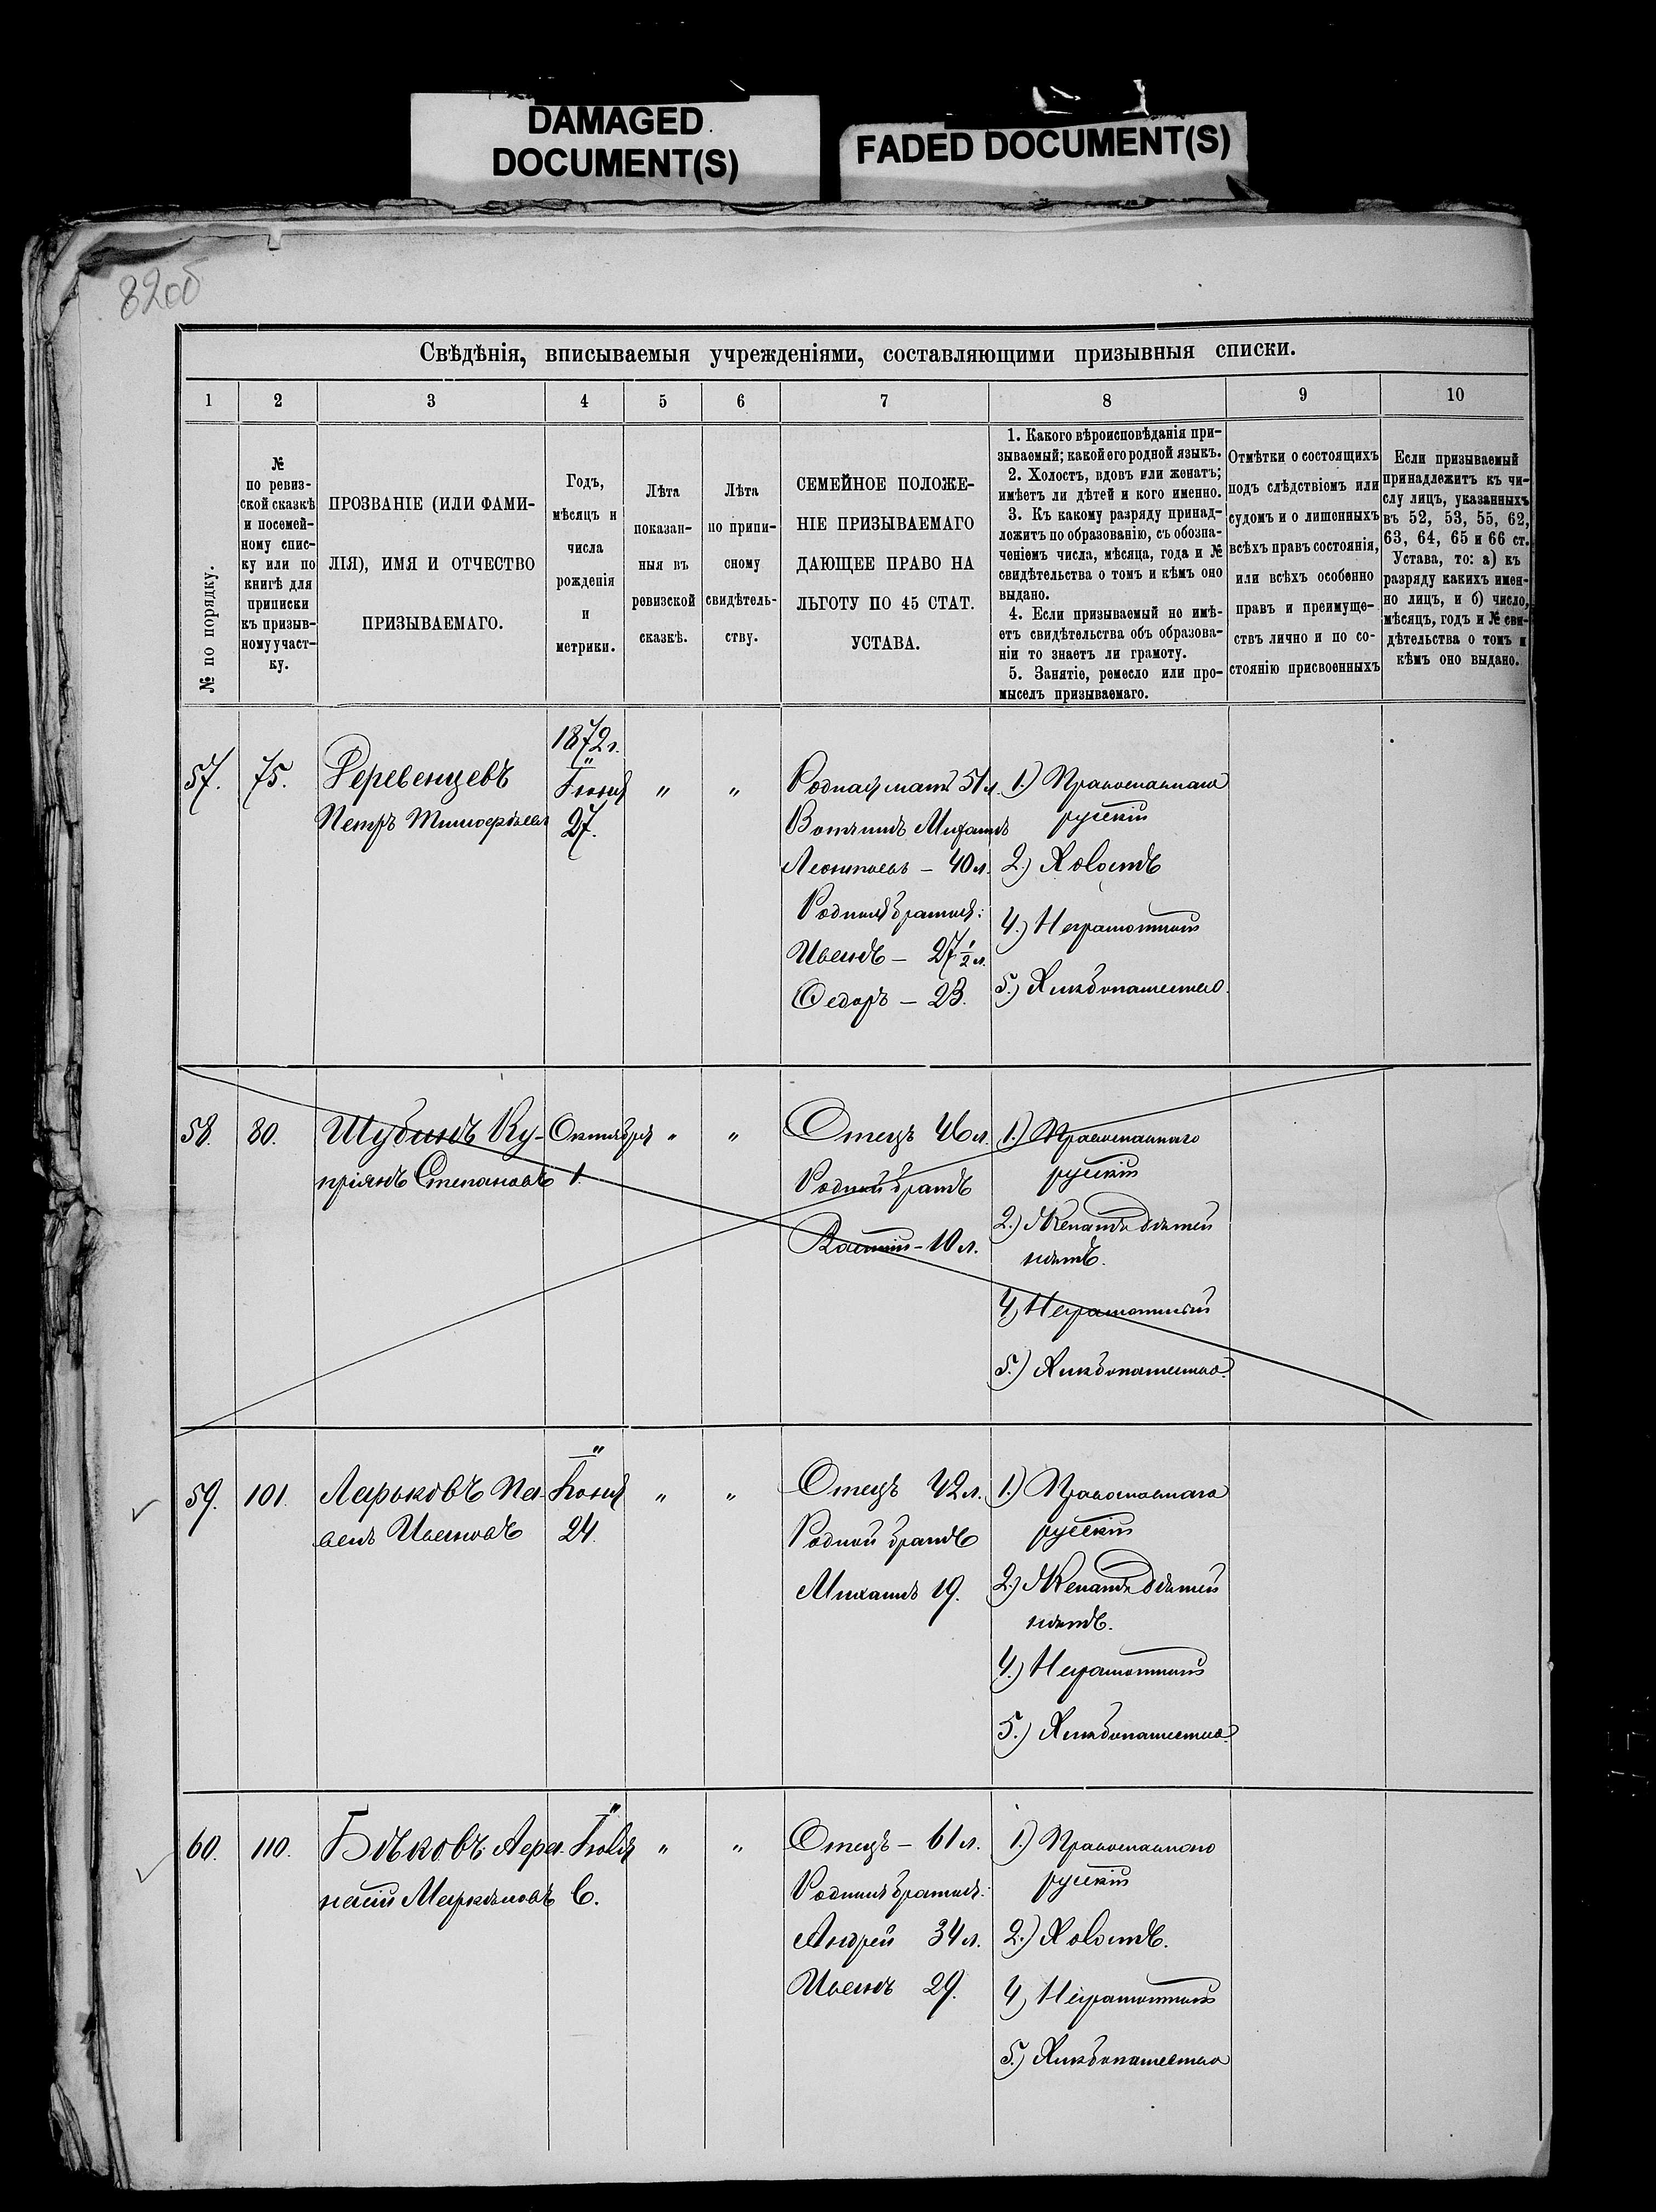 DAMAGED
DOCUMENT(S)
FADED DOCUMENT(S)
82об
Свѣдѣнія, вписываемыя учрежденіями, составляющими призывныя списки.
1 2 3 4 5 6 7 8 9 10
№ по порядку.
№
по ревиз-
ской сказкѣ
и посемей-
ному спис-
ку или по
книгѣ для
приписки
къ призыв-
ному участ-
ку.
ПРОЗВАНІЕ (ИЛИ ФАМИ-
ЛІЯ), ИМЯ И ОТЧЕСТВО
ПРИЗЫВАЕМАГО.
Годъ,
мѣсяцъ и
числа
рожденія
и
метрики.
Лѣта
показан-
ныя въ
ревизской
сказкѣ.
Лѣта
по припи-
сному
свидѣтель-
ству.
СЕМЕЙНОЕ ПОЛОЖЕ-
НІЕ ПРИЗЫВАЕМАГО
ДАЮЩЕЕ ПРАВО НА
ЛЬГОТУ ПО 45 СТАТ.
УСТАВА.
1. Какого вѣроисповѣданія при-
зываемый; какой его родной языкъ.
2. Холостъ, вдовъ или женатъ;
имѣетъ ли дѣтей и кого именно.
3. Къ какому разряду принад-
лежитъ по образованію, съ обозна-
ченіемъ числа, мѣсяца, года и №
свидѣтельства о томъ и кѣмъ оно
выдано.
4. Если призываемый не имѣ-
етъ свидѣтельства объ образова-
ніи то знаетъ ли грамоту.
5. Занятіе, ремесло или про-
мыселъ призываемаго.
Отмѣтки о состоящихъ
подъ слѣдствіемъ или
судомъ и о лишенныхъ
всѣхъ правъ состоянія,
или всѣхъ особенно
правъ и преимуще-
ствъ лично и по со-
стоянію присвоенныхъ
Если призываемый
принадлежитъ къ чи-
слу лицъ, указанныхъ
въ 52, 53, 55, 62,
63, 64, 65 и 66 ст.
Устава, то: а) къ
разряду какихъ имен-
но лицъ, и б) число,
мѣсяцъ, годъ и № сви-
дѣтельства о томъ и
кѣмъ оно выдано.
57. 75.
Деревенцевъ
Петръ
1872 г.
Іюня
27.
" "
Родная мать 51 л.
Вотчимъ Михаилъ
Леонтьевъ – 40 л.
Родныя братья:
Иванъ – 27 1/2 л.
Ѳедоръ – 23.
1.) Православнаго
русскій
2.) Холостъ
4.) Неграмотный
5.) Хлѣбопашество.
58. 80.
Шубинъ Ку-
пріянъ Степановъ
Октября
1.
" "
Отецъ 46 л.
Родной братъ
– 10 л.
1.) Православнаго
русскій
2.) Женатъ дѣтей
нѣтъ.
4.) Неграмотный
5.) Хлѣбопашество.
59. 101.
Ларьковъ Па-
велъ Ивановъ
Іюня
24.
" "
Отецъ 42 л.
Родной братъ
Михаилъ 19.
1.) Православнаго
русскій
2.) Женатъ дѣтей
нѣтъ.
4.) Неграмотный
5.) Хлѣбопашество.
60. 110.
Быковъ Афа-
насій
Іюля
6.
" "
Отецъ – 61 л.
Родныя братья:
Андрей 34 л.
Иванъ 29.
1.) Православнаго
русскій
2.) Холостъ.
4.) Неграмотный
5.) Хлѣбопашество